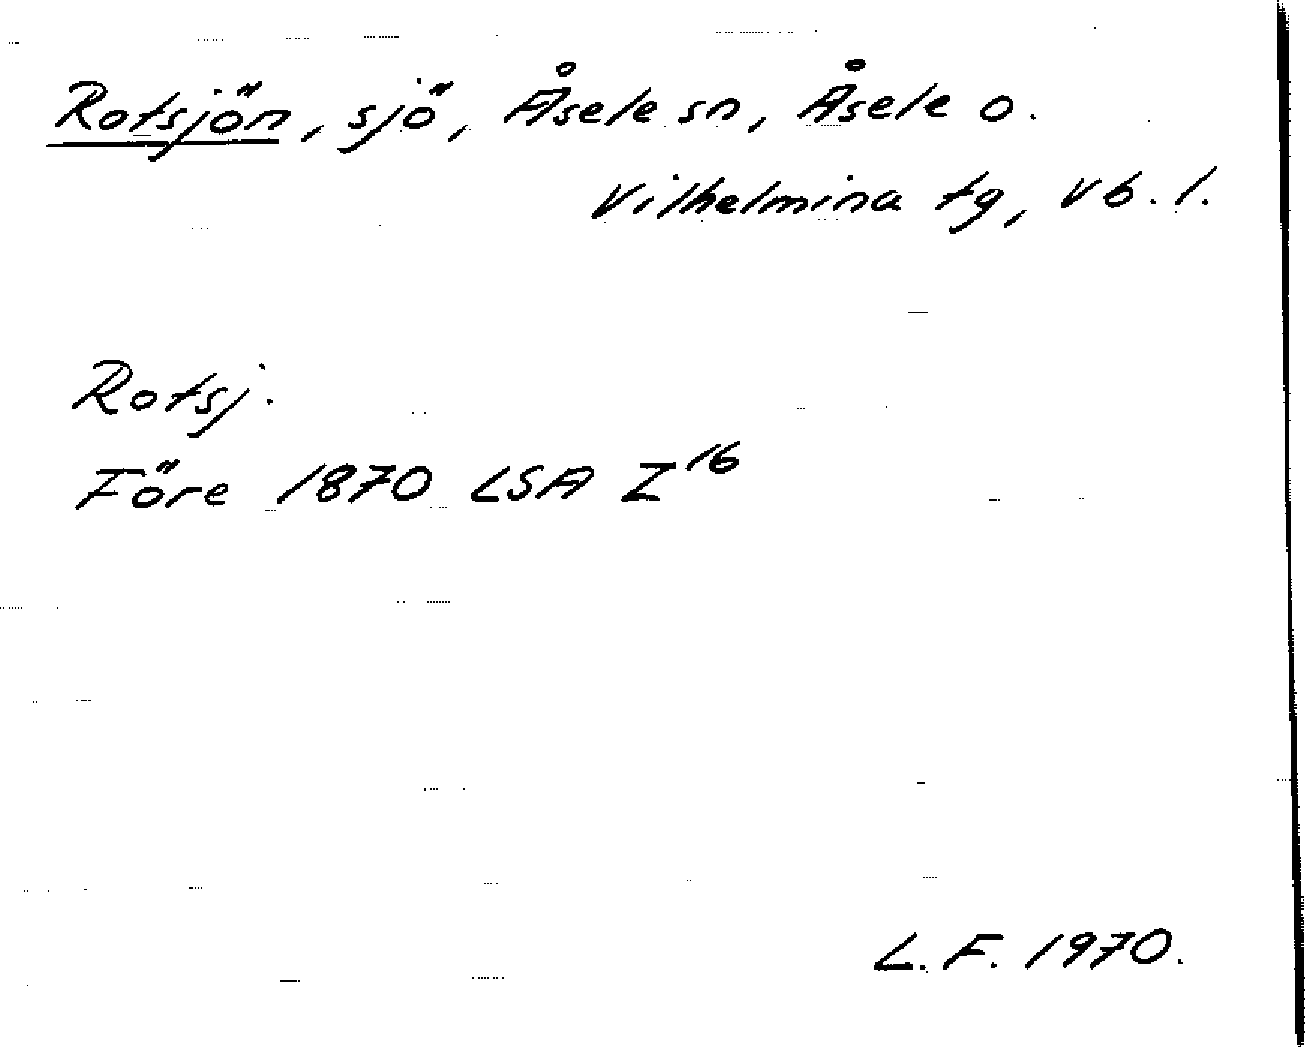 Rotsjön, sjö, Åsele sn, Åsele o.
Vilhelmina tg, Vb. l.
Rotsj.
Före 1870 LSA Z16
L. F. 1970.